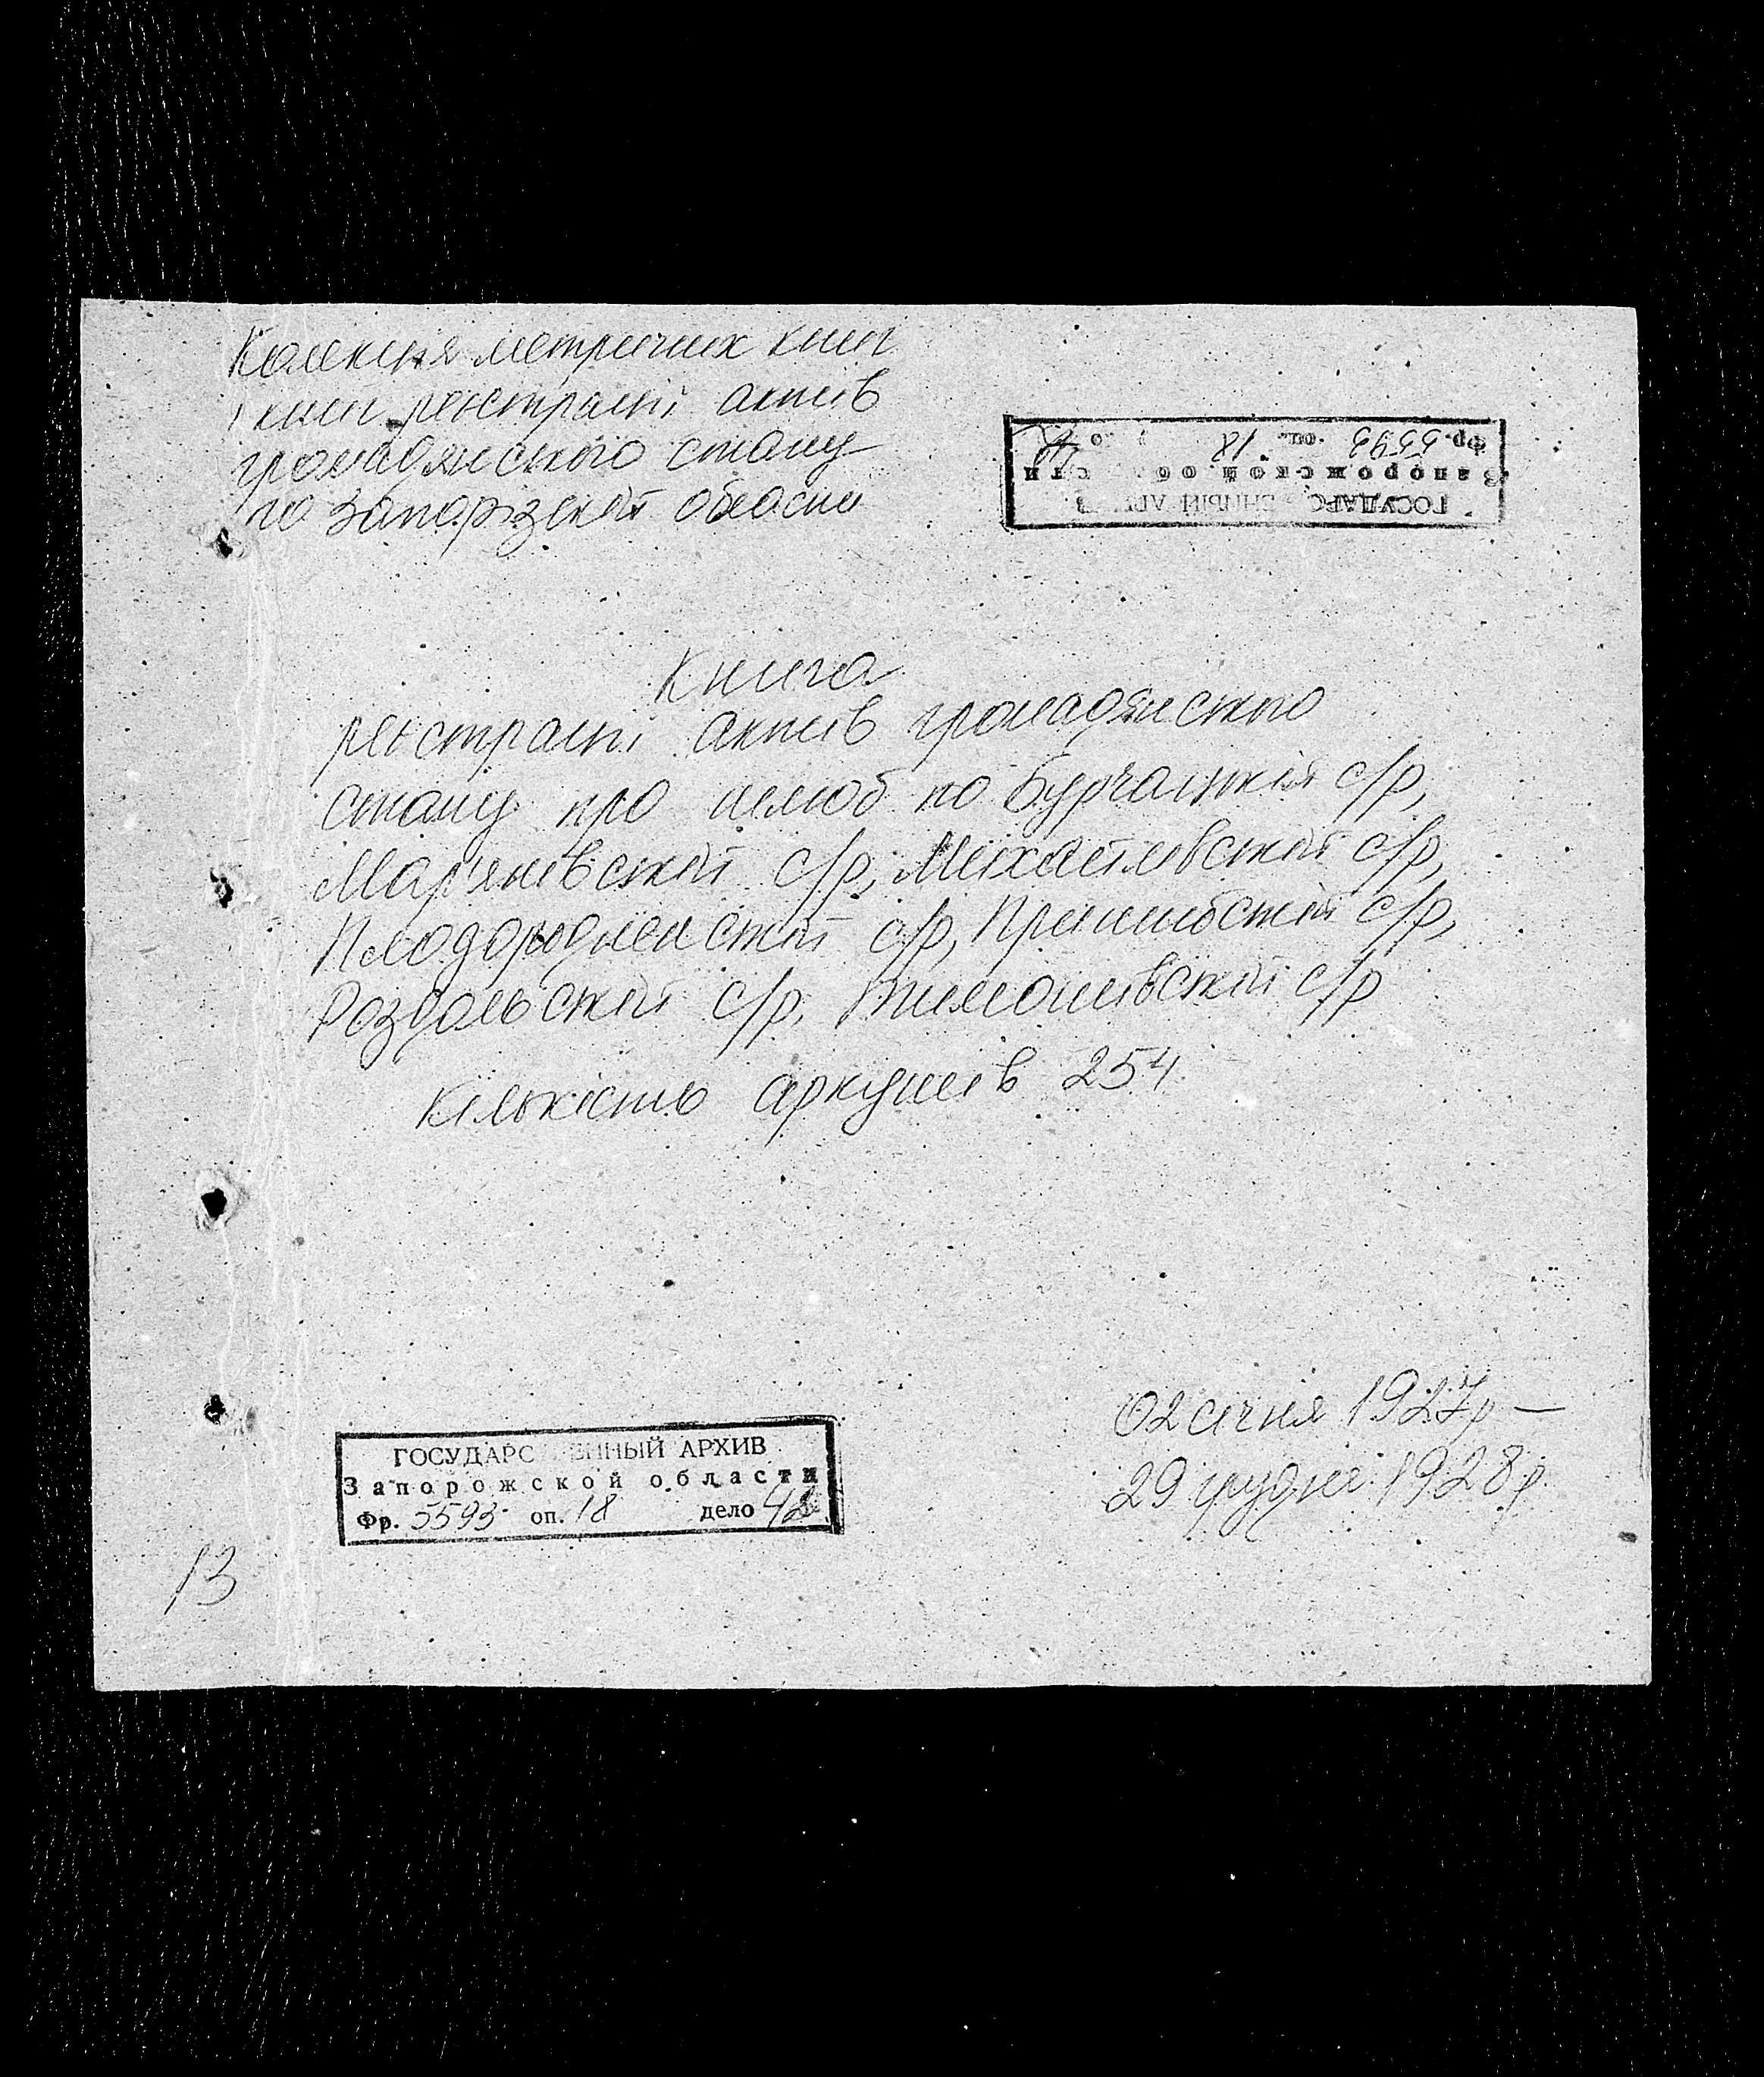 Колекція метричних книг
і книг реєстрації актів
громадянського стану
по Запорізській області
ГОСУДАРС ЕННЫЙ АР В
Запорожской об сти
Фр. 5593 оп. 18
Книга
реєстрації актів громадянського
стану про шлюб по Бурчацькій с/р,
Мар'янівській с/р, Михайлівській с/р,
Плодородненській с/р, Пришибській с/р,
Роздольській с/р, Тимошівській с/р
Кількість аркушів 254
02 січня 1927р —
29 грудня 1928р.
ГОСУДАРС ЕННЫЙ АРХИВ
Запорожской области
Фр. 5593 оп. 18 дело 42
13